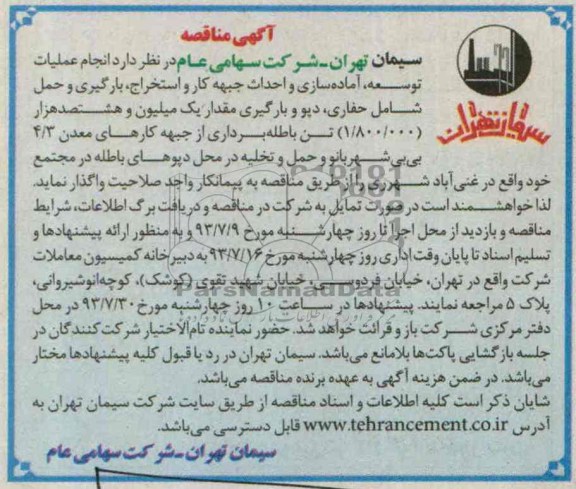 آگهی مناقصه
سیمان تهران
سیمان تهران-شرکت سهامی عام در نظر دارد انجام عملیات
توسعه، آماده‌سازی و احداث جبهه کار و استخراج، بارگیری و حمل
شامل حفاری، دپو و بارگیری مقدار یک میلیون و هشتصدهزار
(۱/۸۰۰/۰۰۰) تن باطله‌برداری از جبهه کارهای معدن ۴/۳
بی‌بی‌شهربانو و حمل و تخلیه در محل دپوهای باطله در مجتمع
خود واقع در غنی‌آباد شهرری را از طریق مناقصه به پیمانکار واجد صلاحیت واگذار نماید.
لذا خواهشمند است در صورت تمایل به شرکت در مناقصه و دریافت برگ اطلاعات، شرایط
مناقصه و بازدید از محل اجرا تا روز چهارشنبه مورخ ۹۳/۷/۹ و به منظور ارائه پیشنهادها و
تسلیم اسناد تا پایان وقت اداری روز چهارشنبه مورخ ۹۳/۷/۱۶ به دبیرخانه کمیسیون معاملات
شرکت واقع در تهران، خیابان فردوسی، خیابان شهید تقوی (کوشک)، کوچه‌انوشیروانی،
پلاک ۵ مراجعه نمایند. پیشنهادها در ساعت ۱۰ روز چهارشنبه مورخ ۹۳/۷/۳۰ در محل
دفتر مرکزی شرکت باز و قرائت خواهد شد. حضور نماینده تام‌الاختیار شرکت‌کنندگان در
جلسه بازگشایی پاکت‌ها بلامانع می‌باشد. سیمان تهران در رد یا قبول کلیه پیشنهادها مختار
می‌باشد. در ضمن هزینه آگهی به عهده برنده مناقصه می‌باشد.
شایان ذکر است کلیه اطلاعات و اسناد مناقصه از طریق سایت شرکت سیمان تهران به
آدرس www.tehrancement.co.ir قابل دسترسی می‌باشد.
سیمان تهران-شرکت سهامی عام
ParsNamadData